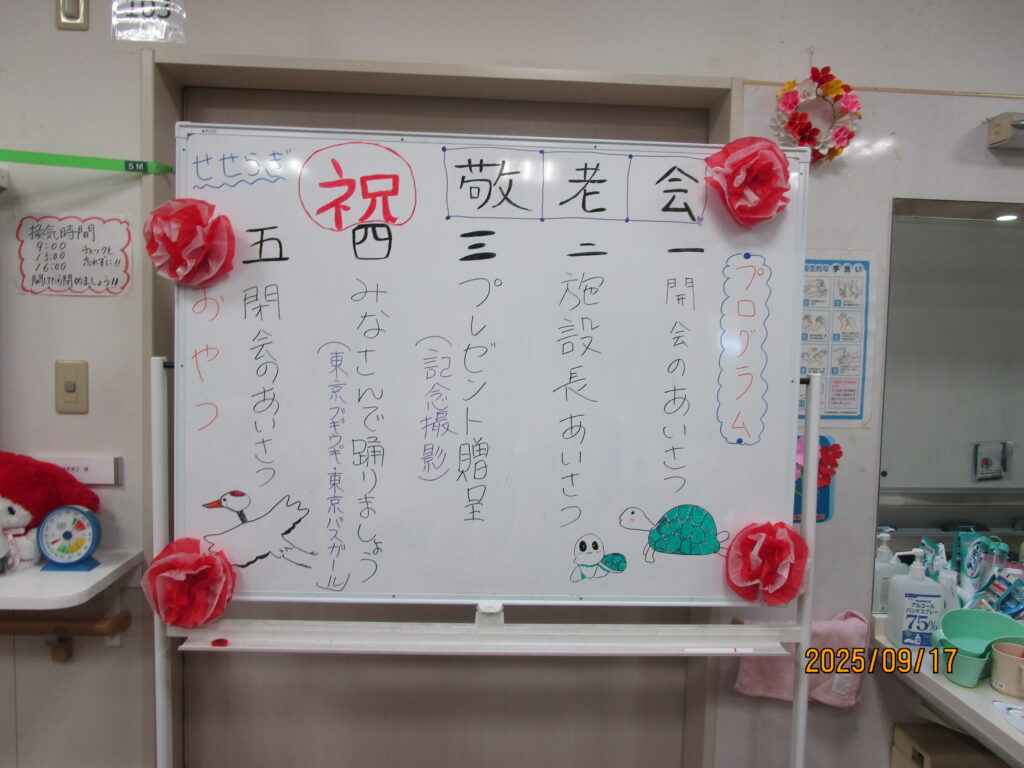 せせらぎ
祝
敬老会
プログラム
一 開会のあいさつ
二 施設長あいさつ
三 プレゼント贈呈
(記念撮影)
四 みなさんで踊りましょう
(東京ブギウギ・東京バスガール)
五 閉会のあいさつ
おやつ
換気時間
9:00
13:00
16:00
チェックも
忘れずに!!
開けたら閉めましょう!!
5M
手洗い
アルコール
ハンドスプレー
75%
2025/09/17